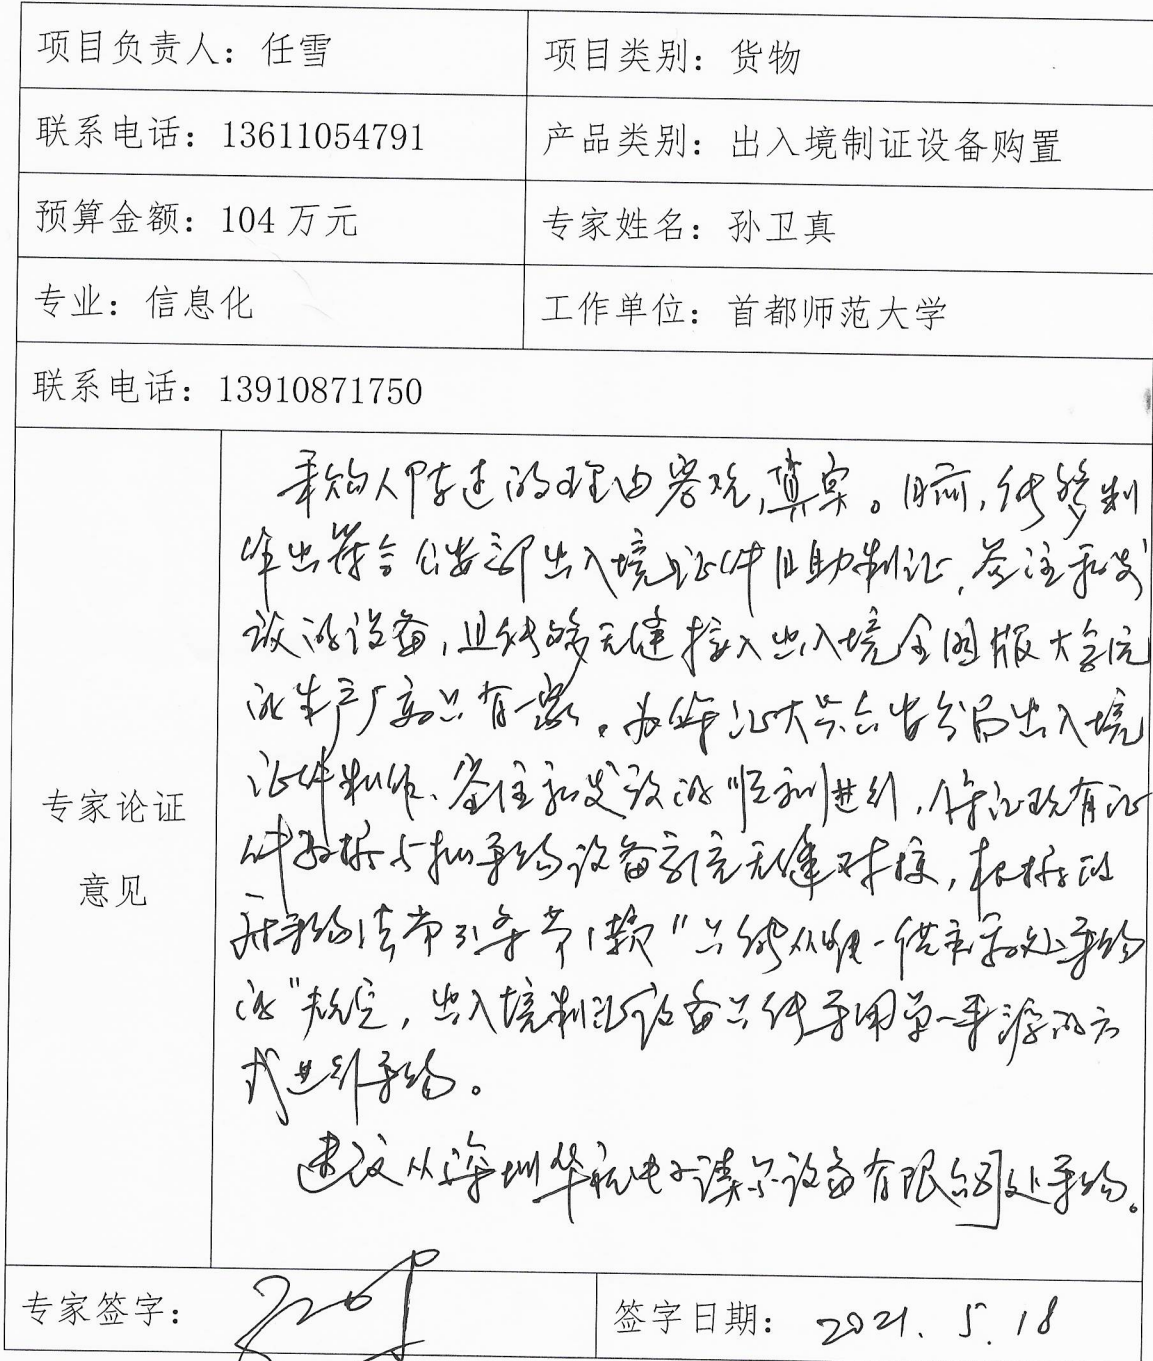 项目负责人：任雪
项目类别：货物
联系电话：13611054791
产品类别：出入境制证设备购置
预算金额：104万元
专家姓名：孙卫真
专业：信息化
工作单位：首都师范大学
联系电话：13910871750
专家论证
意见
采购人陈述的理由客观,真实。目前,能够制
作出符合公安部出入境证件自助制证、签注和发
放的设备,且能够无缝接入出入境全国版大系统
的生产厂家只有一家。为保证大兴公安分局出入境
证件制作、签注和发放的顺利进行,保证现有证
件数据与拟采购设备系统无缝对接,根据政
府采购法第31条第1款"只能从唯一供应商处采购
的"规定,出入境制证设备只能采用单一来源的方
式进行采购。
建议从深圳华航电子读写设备有限公司处采购。
专家签字：
签字日期：2021.5.18